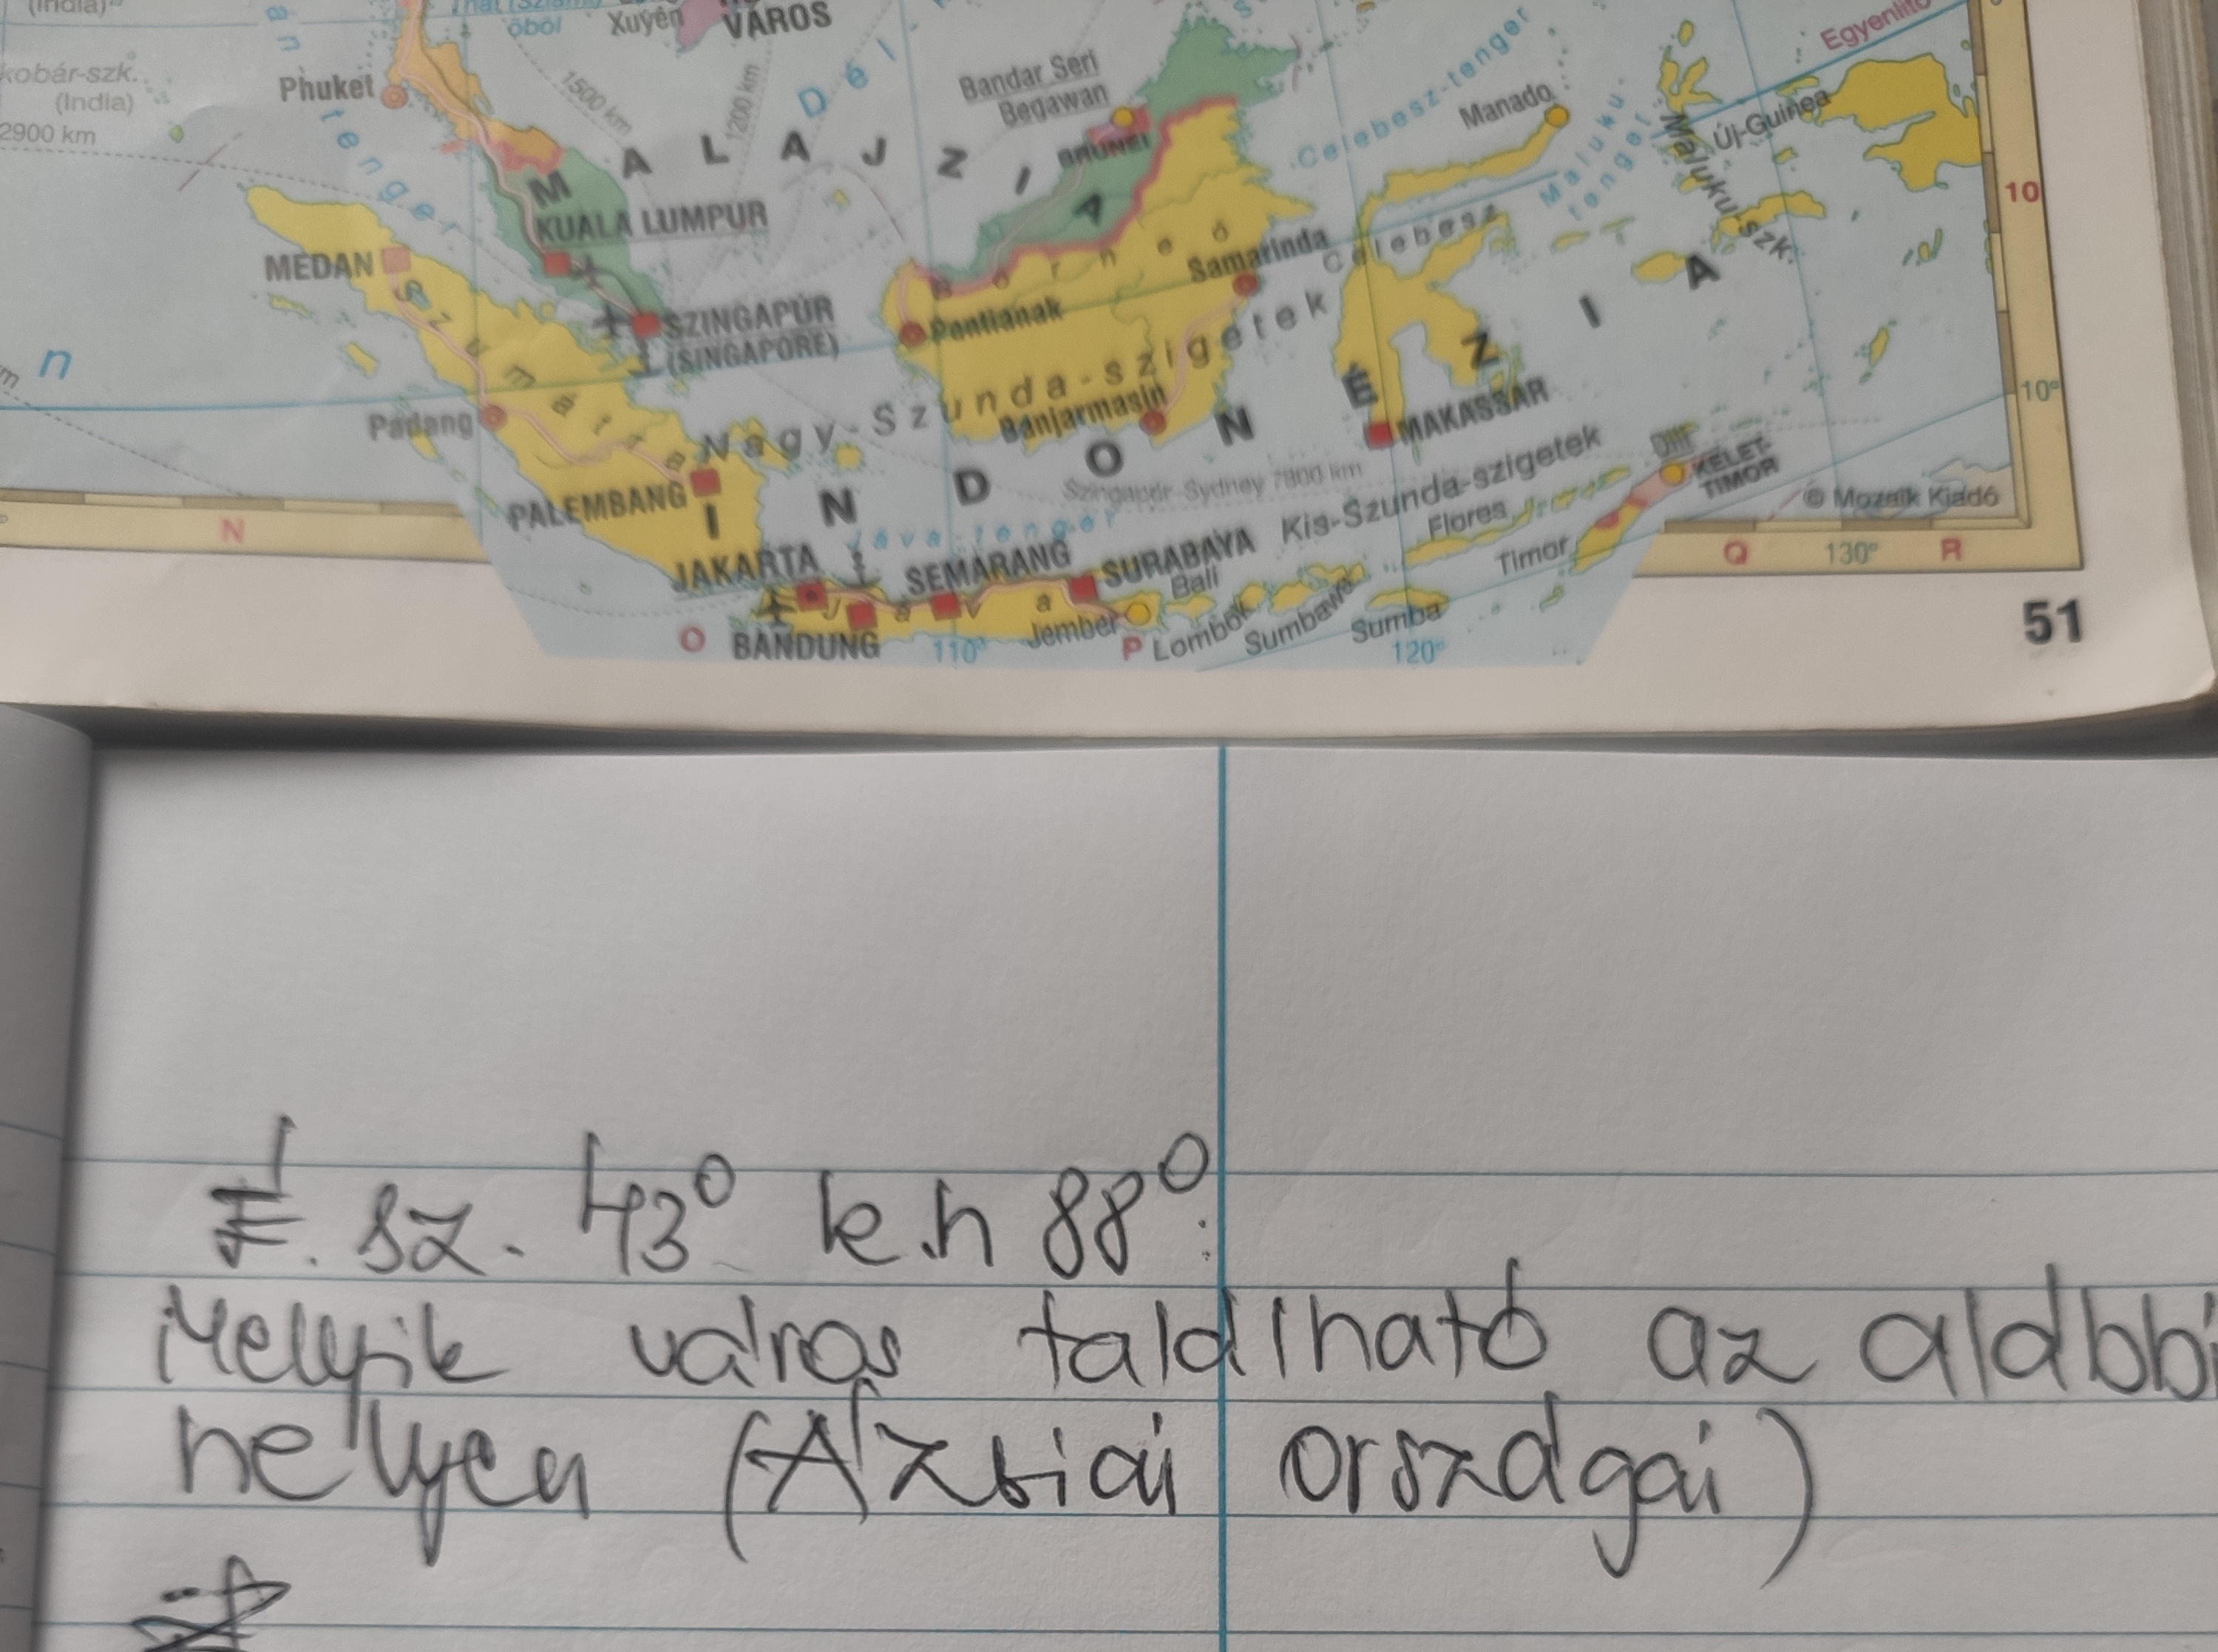 (India)
Thai (Sziámi)
öböl
Xuyên
VÁROS
Egyenlítő
kobár-szk.
(India)
2900 km
Phuket
tenger
1500 km
1200 km
Dél-
Bandar Seri
Begawan
BRUNEI
Celebesz-tenger
Manado
Maluku-
tenger
Maluku-szk.
Új-Guinea
10
MALAJZIA
KUALA LUMPUR
MEDAN
Szumátra
SZINGAPÚR
(SINGAPORE)
Borneó
Pontianak
Samarinda
Celebesz
n
m
Padang
Nagy-Szunda-szigetek
Banjarmasin
MAKASSAR
10°
INDONÉZIA
PALEMBANG
Szingapúr-Sydney 7800 km
Kis-Szunda-szigetek
Dili
KELET-
TIMOR
© Mozaik Kiadó
Jáva-tenger
Flores
Timor
N
JAKARTA
SEMARANG
SURABAYA
Bali
Jáva
O
BANDUNG
110°
Jember
P
Lombok
Sumbawa
Sumba
120°
Q
130°
R
51
É. sz. 43° k.h 88°.
Melyik város található az alábbi
helyen (Ázsiai országai)